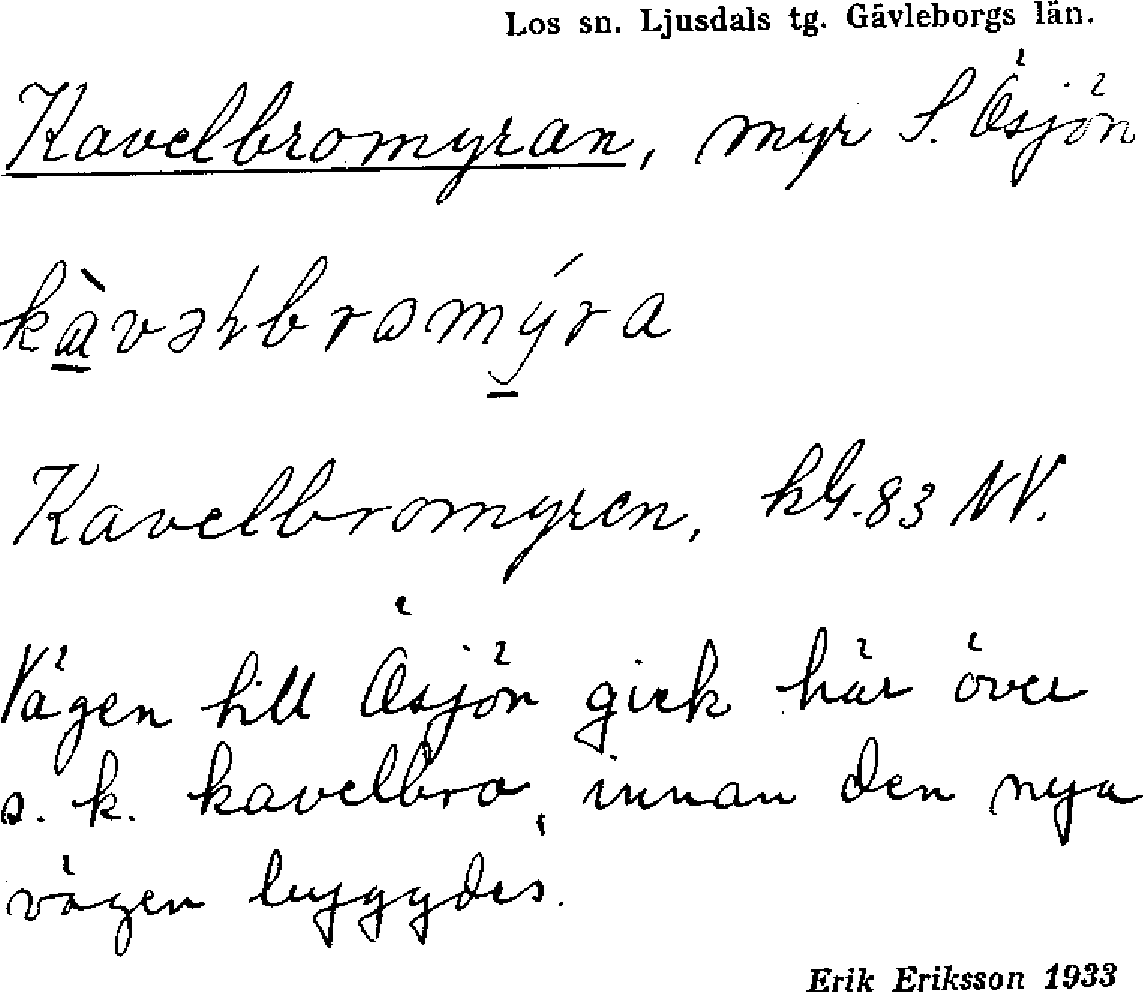 Los sn. Ljusdals tg. Gävleborgs län.
Kavelbromyran, myr S. Ösjön
Kavelbromyren, kbl. 83 NV.
Vägen till Ösjön gick här över
s. k. kavelbro, innan den nya
vägen byggdes.
Erik Eriksson 1933